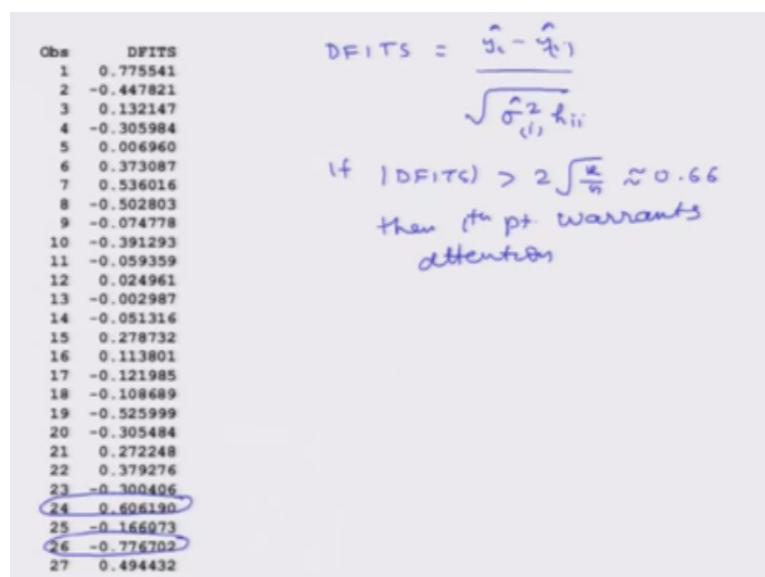 Obs DFITS
1 0.775541
2 -0.447821
3 0.132147
4 -0.305984
5 0.006960
6 0.373087
7 0.536016
8 -0.502803
9 -0.074778
10 -0.391293
11 -0.059359
12 0.024961
13 -0.002987
14 -0.051316
15 0.278732
16 0.113801
17 -0.121985
18 -0.108689
19 -0.525999
20 -0.305484
21 0.272248
22 0.379276
23 -0.300406
24 0.606190
25 -0.166073
26 -0.776702
27 0.494432
DFITS = ŷi - ŷ(i)
√ σ̂²(i) hii
If |DFITS| > 2 √ k/n ≈ 0.66
then ith pt. warrants
attention